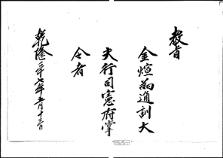 教旨
金煊爲通訓大
夫行司憲府掌
令者
乾隆三十七年五月十三日